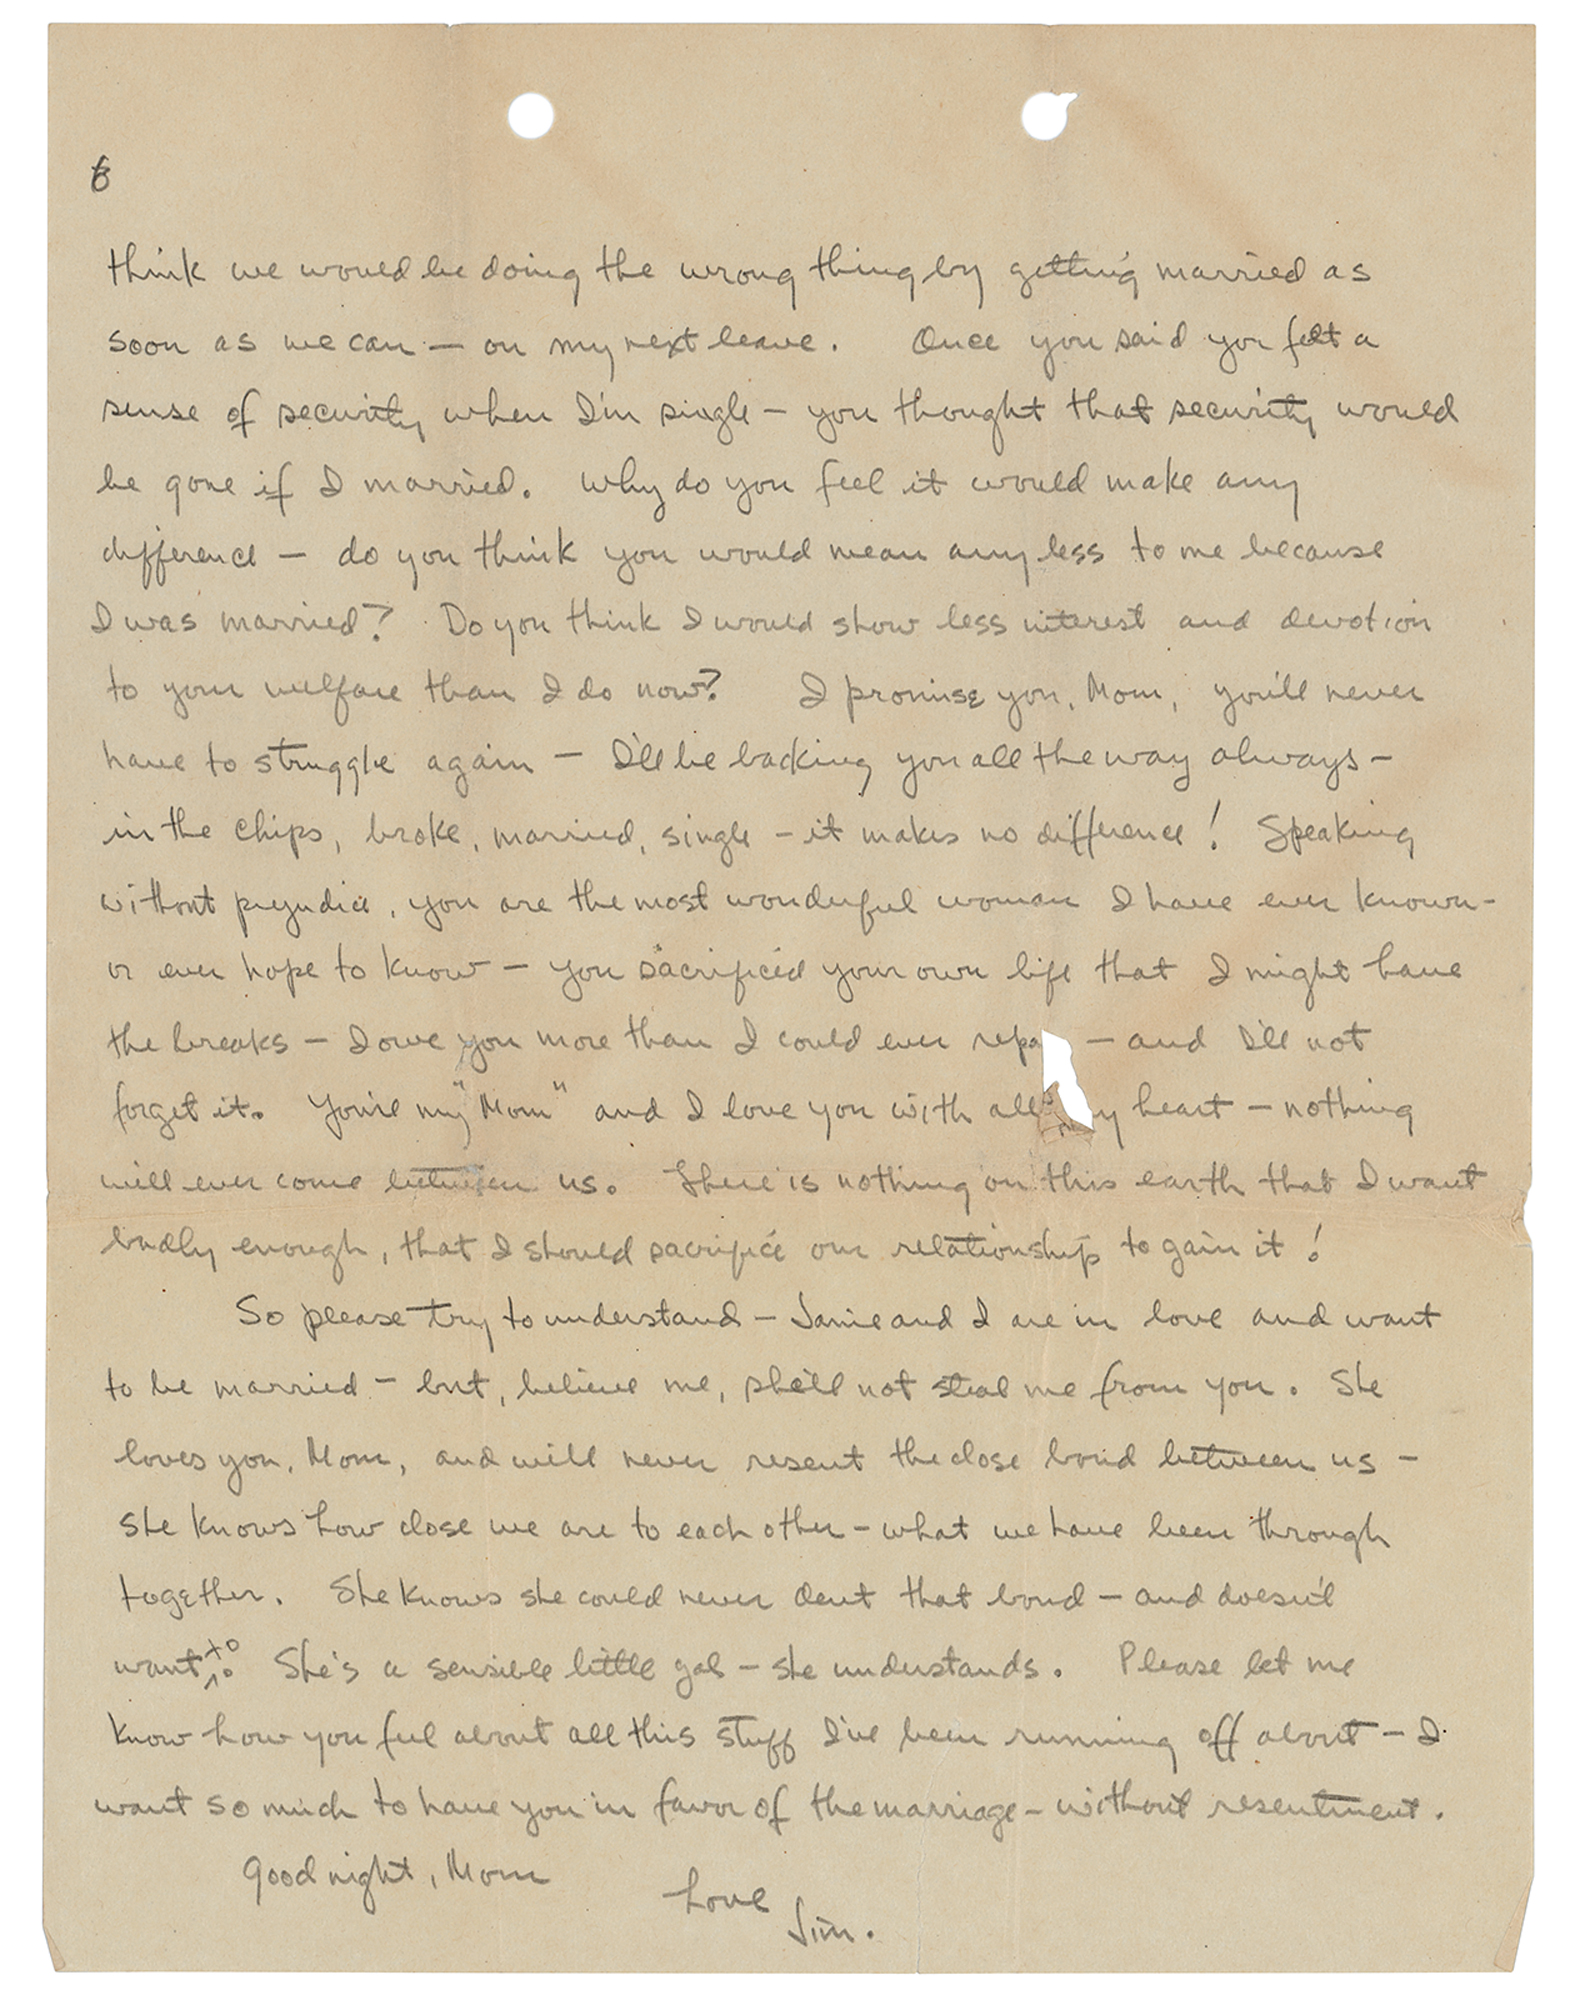 6
think we would be doing the wrong thing by getting married as
soon as we can — on my next leave. Once you said you felt a
sense of security when I'm single — you thought that security would
be gone if I married. Why do you feel it would make any
difference — do you think you would mean any less to me because
I was married? Do you think I would show less interest and devotion
to your welfare than I do now? I promise you, Mom, you'll never
have to struggle again — I'll be backing you all the way always —
in the chips, broke, married, single — it makes no difference! Speaking
without prejudice, you are the most wonderful woman I have ever known —
or ever hope to know — you sacrificed your own life that I might have
the breaks — I owe you more than I could ever repa — and I'll not
forget it. You're my "Mom" and I love you with all my heart — nothing
will ever come between us. There is nothing on this earth that I want
badly enough, that I should sacrifice our relationship to gain it!
So please try to understand — Janie and I are in love and want
to be married — but, believe me, she'll not steal me from you. She
loves you, Mom, and will never resent the close bond between us —
she knows how close we are to each other — what we have been through
together. She knows she could never dent that bond — and doesn't
want to. She's a sensible little gal — she understands. Please let me
know how you feel about all this stuff I've been running off about — I
want so much to have you in favor of the marriage — without resentment.
Good night, Mom
Love
Jim.